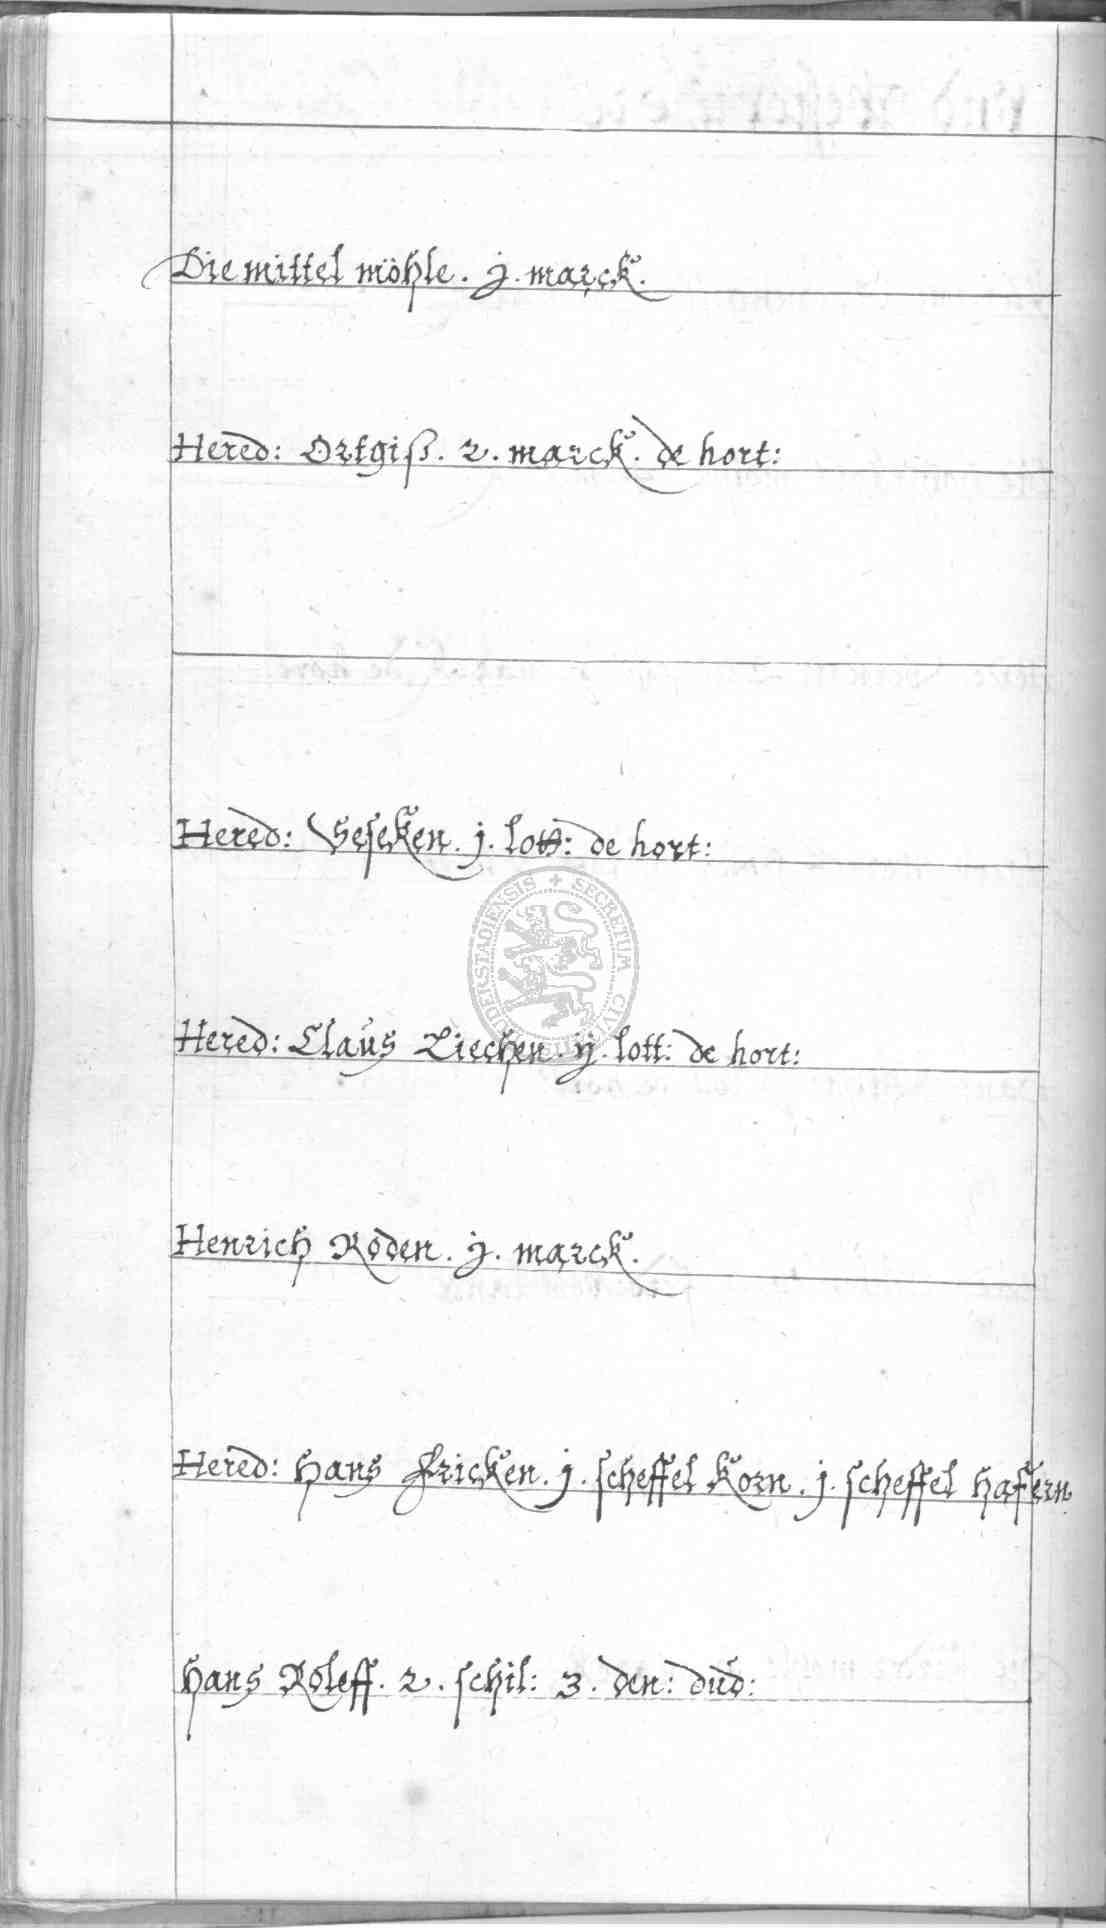 Die mittel möhle. j. marck.
Hered: Ortgiß. 2. marck. de hort:
Hered: Geseken. j. lott: de hort:
Hered: Claus Liechen. ij. lott: de hort:
Henrich Roden. j. marck.
Hered: Hans Fricken. j. scheffel Korn. j. scheffel hafern
Hans Roleff. 2. schil: 3. den: dud:
SECRETUM CIVI
DUDERSTADIENSIS